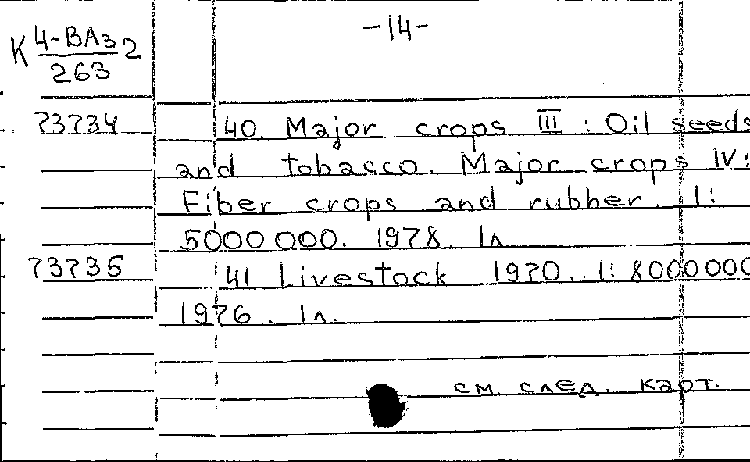 -14-
К 4-ВАз2
263
73734 40 Major crops III : Oil seeds
and tobacco. Major crops IV:
Fiber crops and rubber. 1:
5000 000. 1978. 1л
73735 41 Livestock 1970. 1: 8000000
1976. 1л.
см. след. карт.